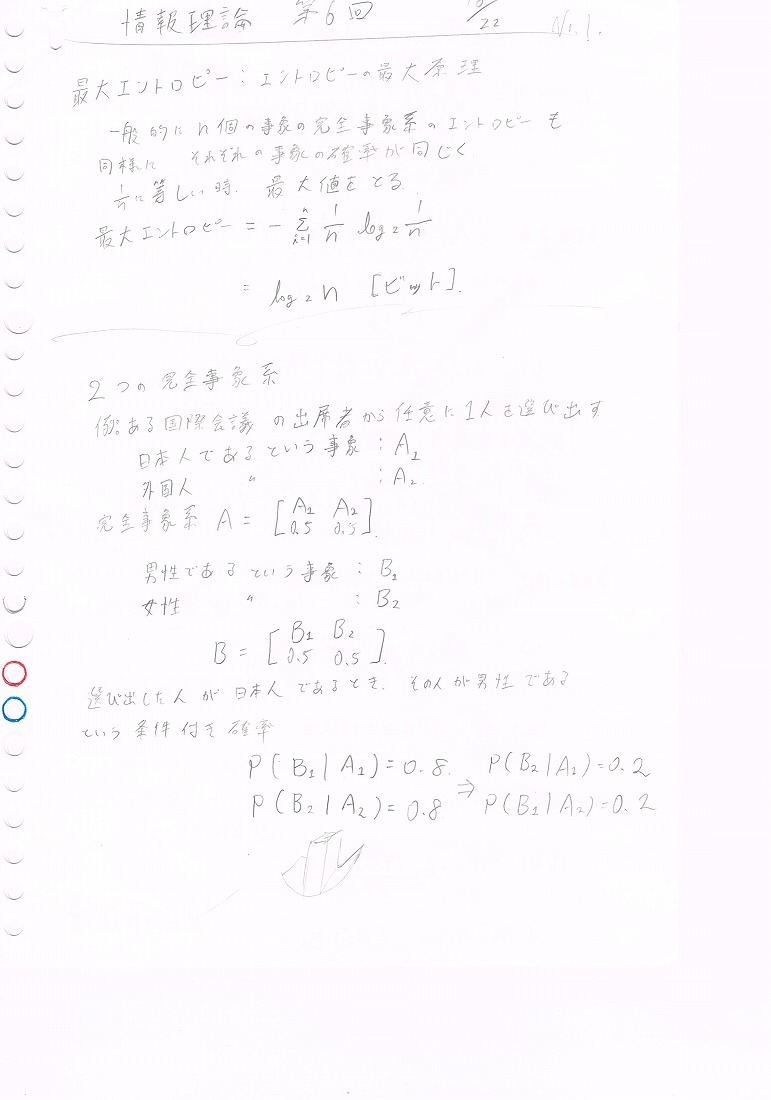 情報理論 第6回 10/22 No.1.
最大エントロピー：エントロピーの最大原理
一般的に n個の事象の完全事象系のエントロピーも
同様に それぞれの事象の確率が同じく
1/nに等しい時. 最大値をとる.
最大エントロピー = - Σ_{i=1}^{n} 1/n log₂ 1/n
= log₂ n [ビット].
2つの完全事象系
例。ある国際会議の出席者から任意に1人を選び出す
日本人であるという事象：A₁
外国人 〃 ：A₂.
完全事象系 A = [A₁ A₂
0.5 0.5].
男性であるという事象：B₁
女性 〃 ：B₂
B = [B₁ B₂
0.5 0.5].
選び出した人が日本人であるとき. その人が男性である
という条件付き確率
P(B₁|A₁)=0.8. P(B₂|A₁)=0.2
⇒
P(B₂|A₂)=0.8 P(B₁|A₂)=0.2